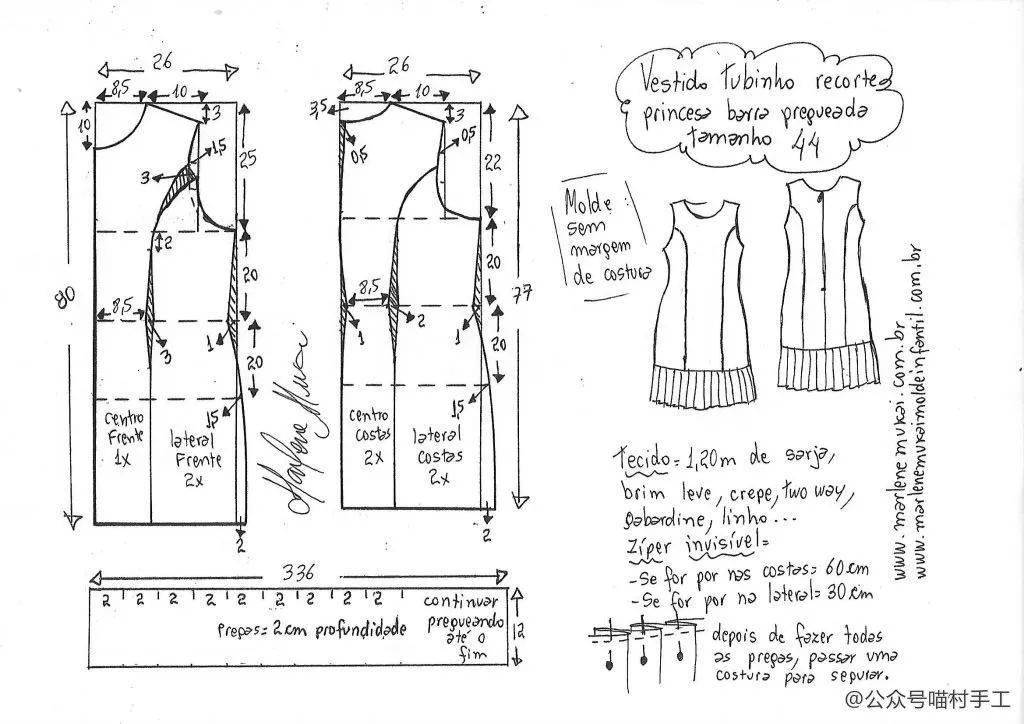 Vestido tubinho recortes
princesa barra pregueada
tamanho 44
Molde:
sem
margem
de costura
26
8,5
10
3
10
1,5
25
3
2
80
20
8,5
3
1
20
1,5
centro
Frente
1x
lateral
Frente
2x
2
26
8,5
10
3,5
3
0,5
0,5
22
77
20
8,5
2
1
1
20
1,5
centro
costas
2x
lateral
costas
2x
2
336
2 2 2 2 2 2 2 2 2
continuar
pregueando
até o
fim
12
Pregas=2cm profundidade
tecido=1,20m de sarja,
brim leve, crepe, two way,
gabardine, linho...
Zíper invisível=
-Se for por nas costas=60cm
-Se for por na lateral=30cm
depois de fazer todas
as pregas, passar uma
costura para segurar.
www.marlenemukai.com.br
www.marlenemukaimoldeinfantil.com.br
@公众号喵村手工